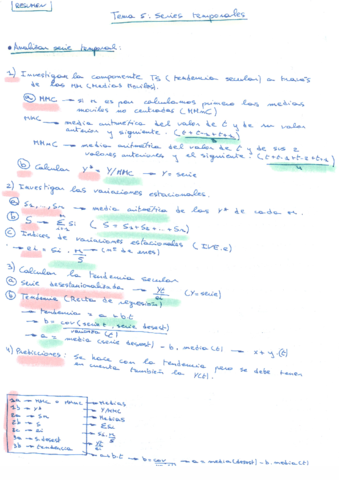 RESUMEN
Tema 5: Series temporales
• Analizar serie temporal:
1) Investigar la componente Ts (tendencia secular) a través
de las MM (Medias Móviles).
a) MMC → si n es par calculamos primero las medias
móviles no centradas (MMnC)
MMC → media aritmética del valor de t y de su valor
anterior y siguiente.
MMnC → media aritmética del valor de t y de sus 2
valores anteriores y el siguiente.
b) Calcular y* = Y/MMC → Y = serie
2) Investigar las variaciones estacionales.
a) S1, ..., Sn → media aritmética de las y* de cada m.
b) S → Σ Si (S = S1+S2+...+Sn)
c) Índices de variaciones estacionales (IVE.e)
3) Calcular la tendencia secular
a) Serie desestacionalizada → (Y=serie)
b) Tendema (Recta de regresión)
→ tendencia = a + b.t
→ b = cov (serie t, serie desest)
varianza (t)
→ a = media (serie desest) - b. media (t) → x + y.(t)
4) Predicciones: Se hace con la tendencia pero se debe tener
en cuenta también la Y(t).
1a → MMC → MMnC → Medias
1b → y* → Y/MMC
2a → Sn → Medias
2b → S → ΣSi
3a → s.desest
3b → tendencia → a+b.t → b = cov → a = media(desest) - b. media(t)